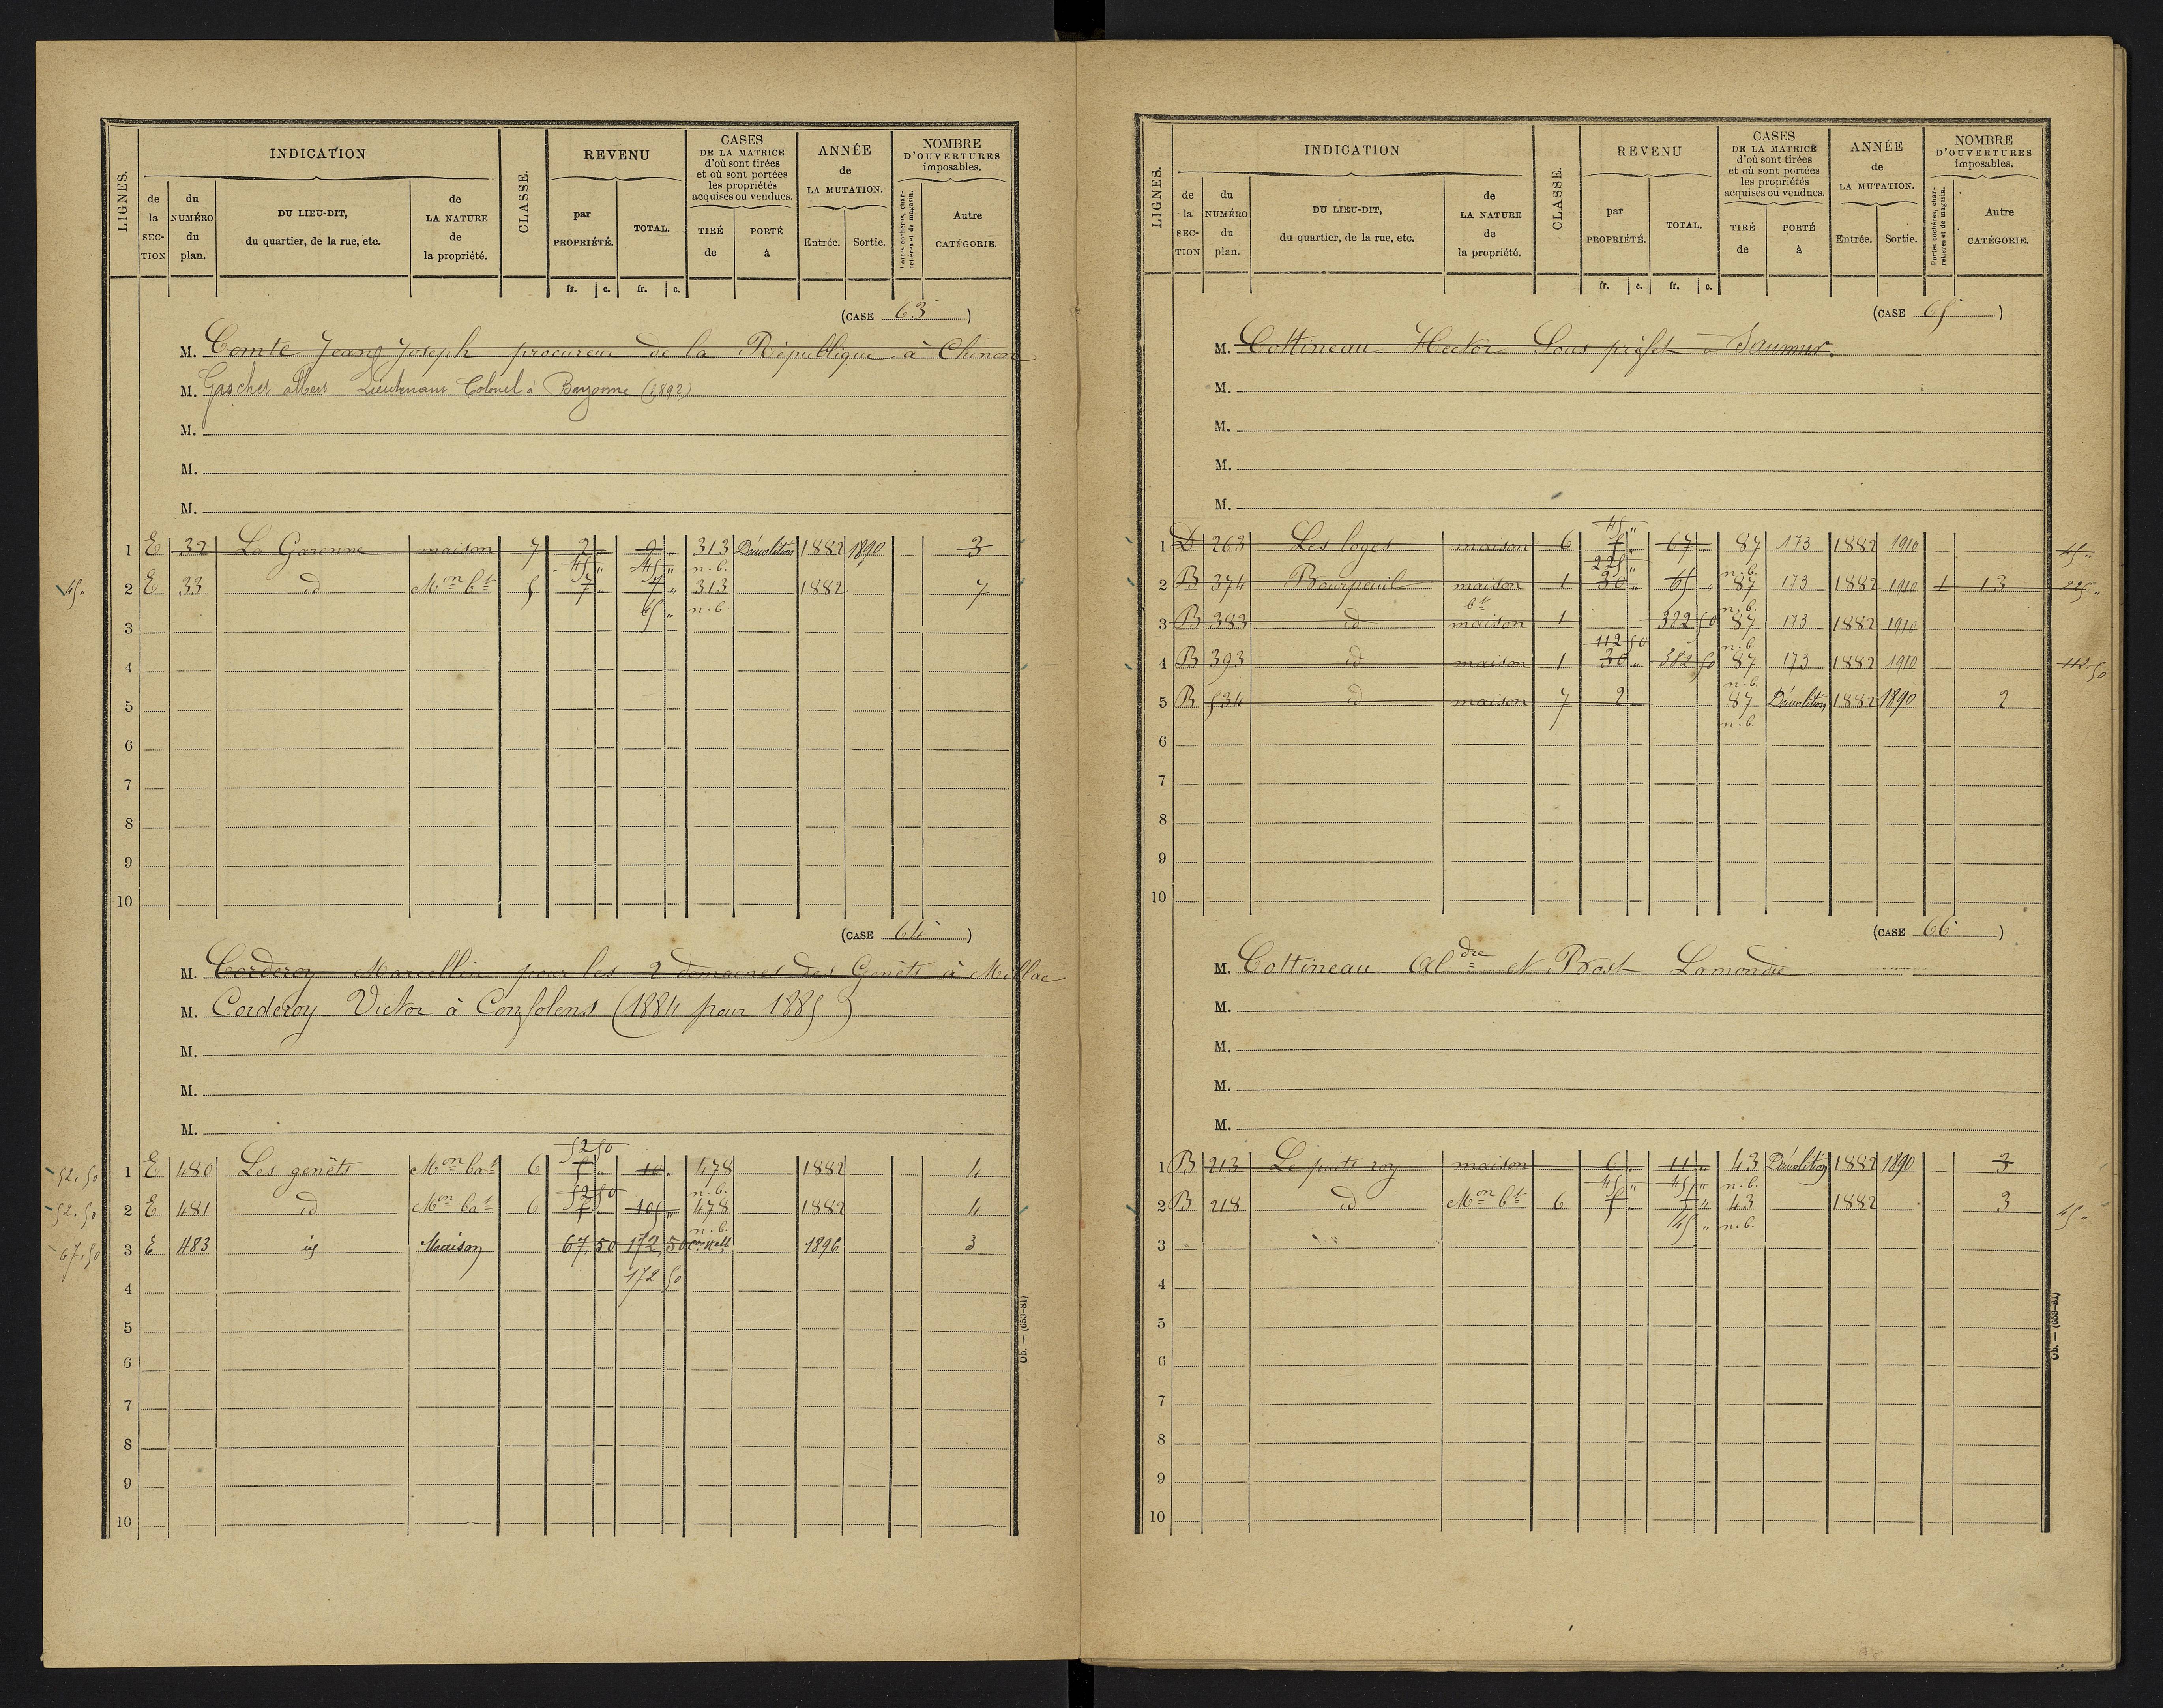 LIGNES.
INDICATION
CLASSE.
REVENU
CASES DE LA MATRICE d'où sont tirées et où sont portées les propriétés acquises ou vendues.
ANNÉE de LA MUTATION.
NOMBRE D'OUVERTURES imposables.
de la SECTION
du NUMÉRO du plan.
DU LIEU-DIT, du quartier, de la rue, etc.
de LA NATURE de la propriété.
par PROPRIÉTÉ.
TOTAL.
TIRÉ de
PORTÉ à
Entrée.
Sortie.
Portes cochères, charretières et de magasin.
Autre CATÉGORIE.
fr. c. fr. c.
(CASE 63)
M. Comte Jean Joseph procureur de la République à Chinon
M. Gaschet albert Lieutenant Colonel à Bayonne (1892)
M.
M.
M.
1 E 32 La Garenne maison 7 2 " 9 " 313 Démolition 1882 1890 3
45 " 45 " n.b.
45 " 2 E 33 id Mon bt 5 7 " 7 " 313 1882 7
45 " n.b.
3
4
5
6
7
8
9
10
(CASE 64)
M. Corderoy Marcellin pour les 2 domaines des Genêts à Millac
M. Corderoy Victor à Confolens (1884 pour 1885)
M.
M.
M.
52 50
52.50 1 E 480 Les genêts Mon bat 6 5 " 10 " 478 1882 4
52 50 n.b.
52.50 2 E 481 id Mon bat 6 5 " 105 " 478 1882 4
n.b.
67.50 3 E 483 id Maison 67 50 172 50 con nell 1896 3
172 50
4
5
6
7
8
9
10
Ob. — (633-81)
LIGNES.
INDICATION
CLASSE.
REVENU
CASES DE LA MATRICE d'où sont tirées et où sont portées les propriétés acquises ou vendues.
ANNÉE de LA MUTATION.
NOMBRE D'OUVERTURES imposables.
de la SECTION
du NUMÉRO du plan.
DU LIEU-DIT, du quartier, de la rue, etc.
de LA NATURE de la propriété.
par PROPRIÉTÉ.
TOTAL.
TIRÉ de
PORTÉ à
Entrée.
Sortie.
Portes cochères, charretières et de magasin.
Autre CATÉGORIE.
fr. c. fr. c.
(CASE 65)
M. Cottineau Hector Sous préfet à Saumur.
M.
M.
M.
M.
45 "
1 D 263 Les loges maison 6 5 " 67 " 87 173 1882 1910 45 "
225 " n.b.
2 B 374 Bourpeuil maison 1 30 " 65 " 87 173 1882 1910 1 13 225 "
bt n.b.
3 B 383 id maison 1 382 50 87 173 1882 1910
112 50 n.b.
4 B 393 id maison 1 30 " 382 50 87 173 1882 1910 112 50
n.b.
5 B 534 id maison 7 2 87 Démolition 1882 1890 2
n.b.
6
7
8
9
10
(CASE 66)
M. Cottineau Aldre et Prost Lamondie
M.
M.
M.
M.
1 B 213 Le puits roy maison 6 " 11 " 43 Démolition 1882 1890 3
45 " 45 " n.b.
2 B 218 id Mon bt 6 5 " 5 " 43 1882 3 45 "
45 " n.b.
3
4
5
6
7
8
9
10
Ob. — (633-81)